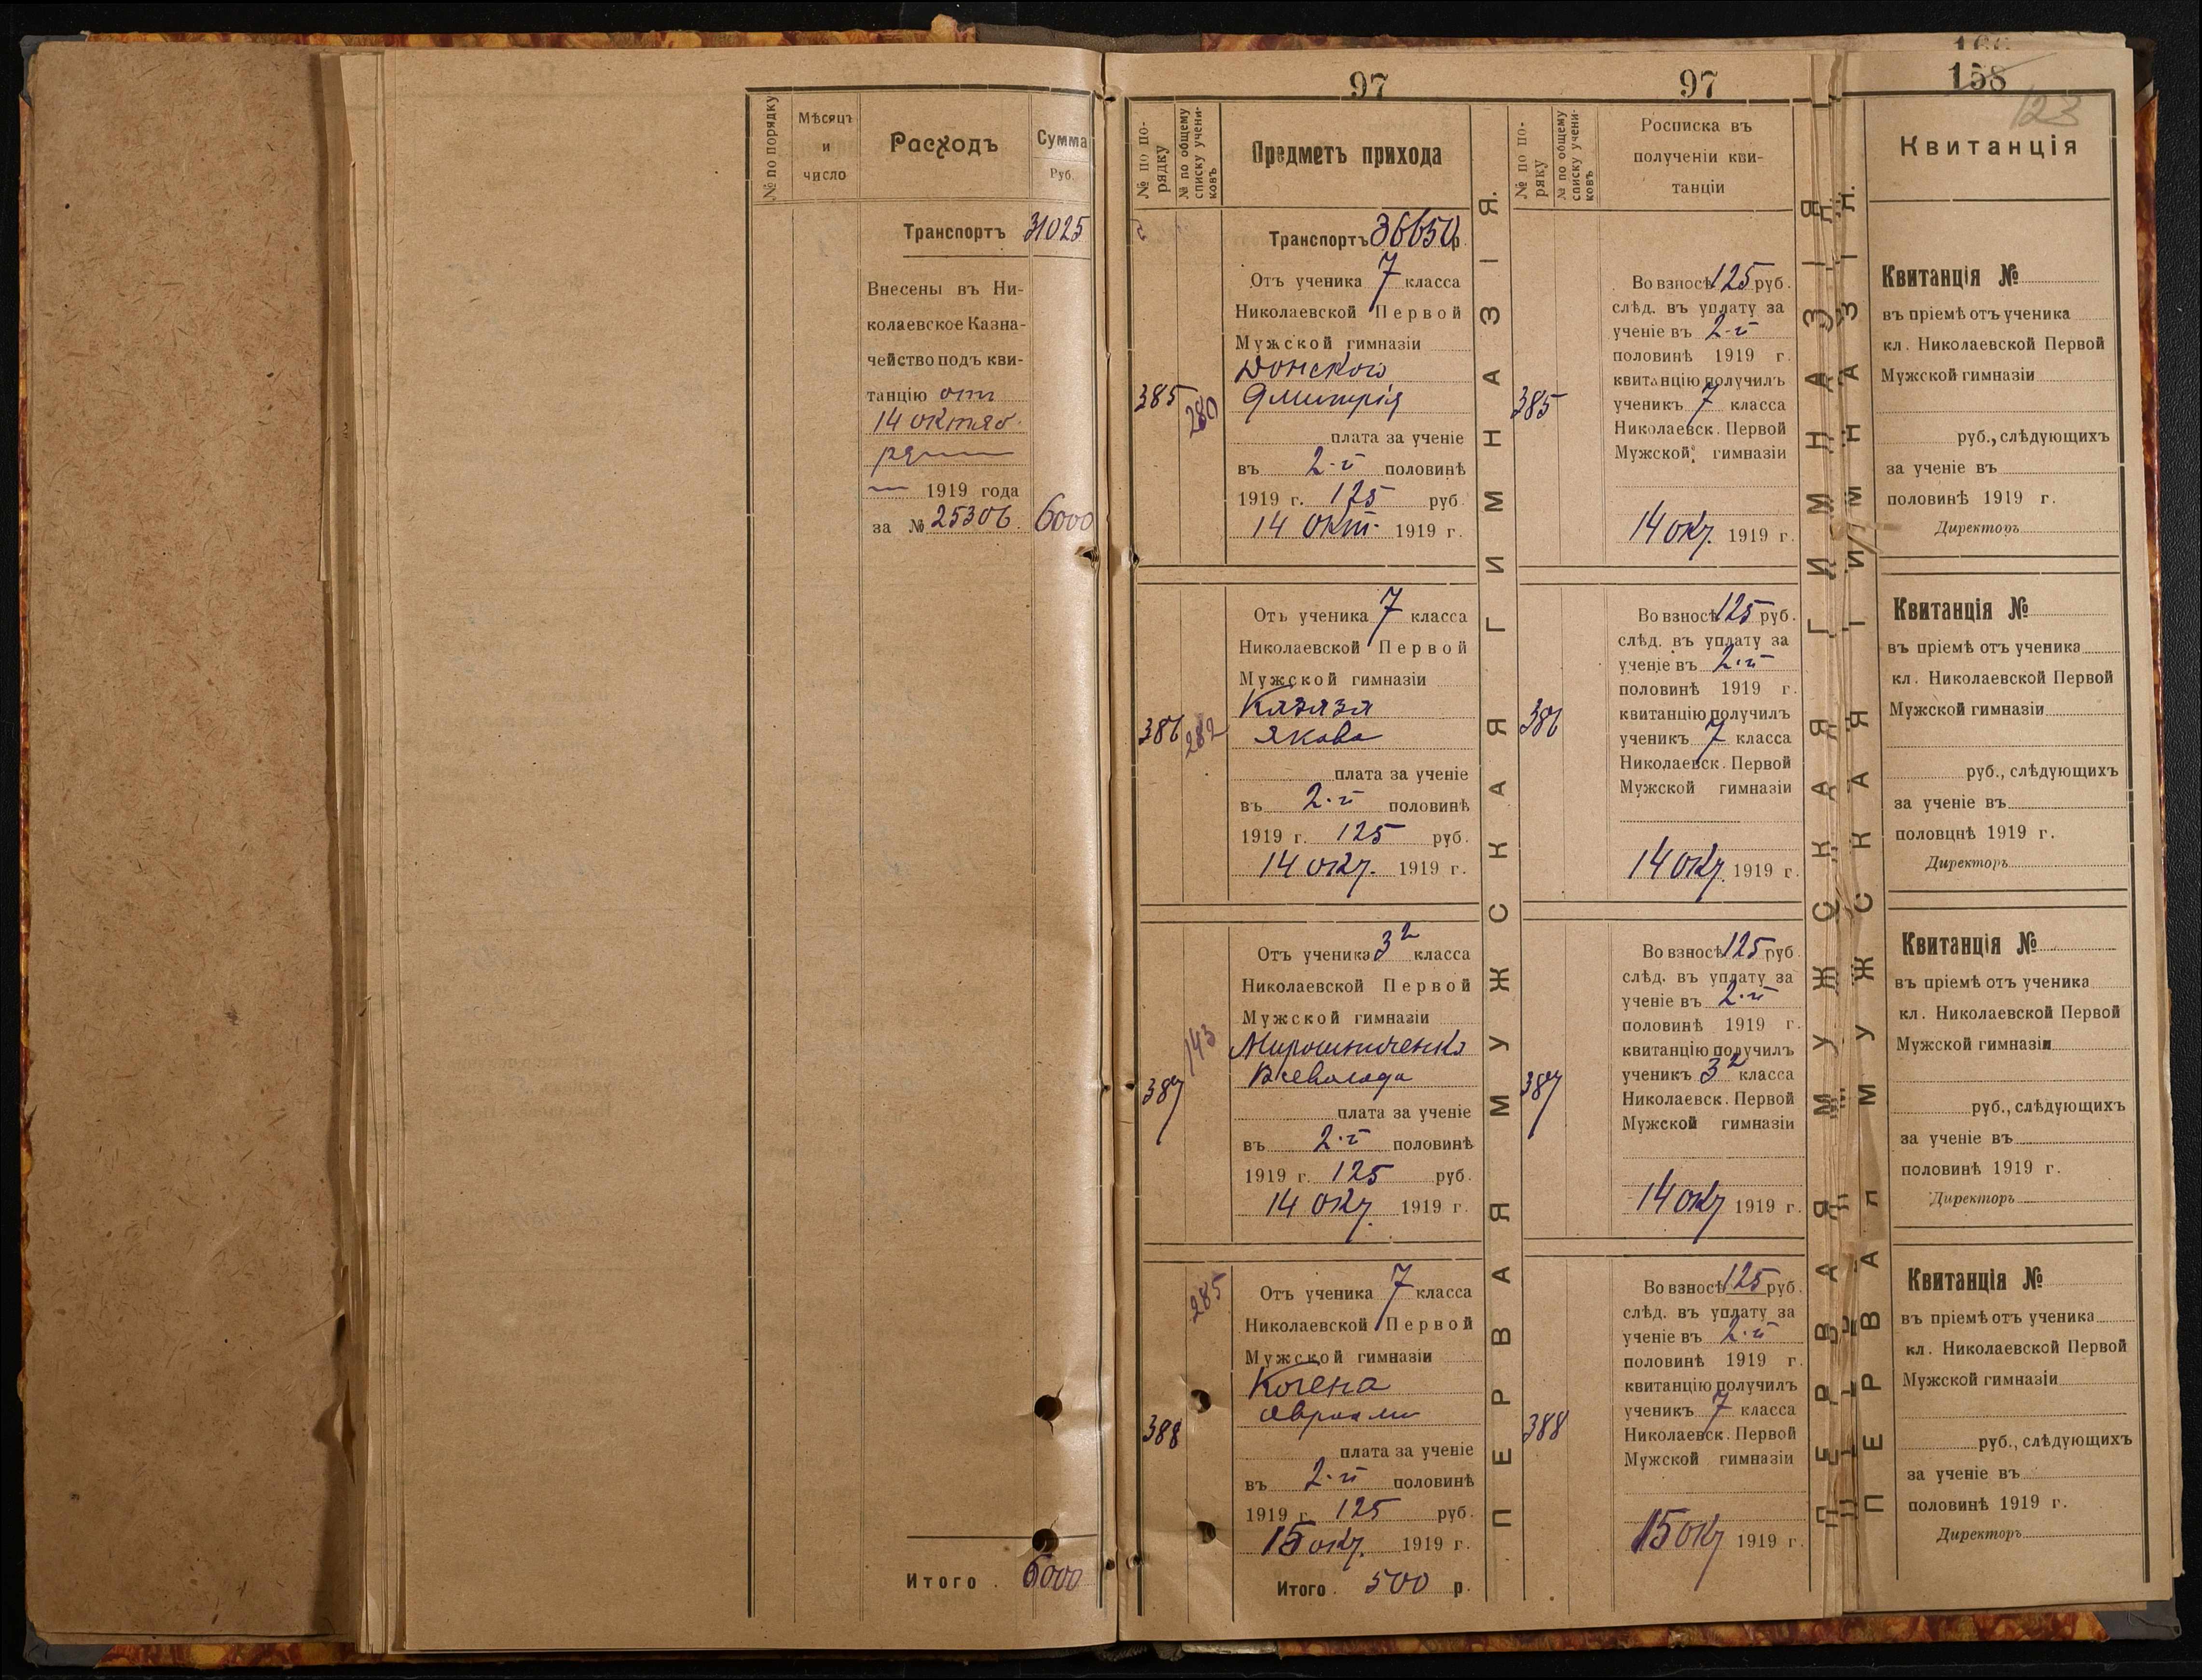 № по порядку
Мѣсяцъ
и
число
Расходъ
Сумма
Руб.
Транспортъ 31025
Внесены въ Ни-
колаевское Казна-
чейство подъ кви-
танцію от
14 октяб
ря
1919 года
за № 25306. 6000
Итого . 6000
97
№ по по-
рядку
№ по общему
списку учени-
ковъ
Предметъ прихода
Транспортъ 36650 р.
385
280
Отъ ученика 7 класса
Николаевской Первой
Мужской гимназіи
Донского
Дмитрія
плата за ученіе
въ 2-й половинѣ
1919 г. 125 руб
14 окт. 1919 г.
386
282
Отъ ученика 7 класса
Николаевской Первой
Мужской гимназіи
Казаза
Якова
плата за ученіе
въ 2-й половинѣ
1919 г. 125 руб.
14 окт. 1919 г.
387
143
Отъ ученика 3² класса
Николаевской Первой
Мужской гимназіи
Мирошниченко
Всеволода
плата за ученіе
въ 2-й половинѣ
1919 г. 125 руб.
14 окт. 1919 г.
388
285
Отъ ученика 7 класса
Николаевской Первой
Мужской гимназіи
Когена
Авраама
плата за ученіе
въ 2-й половинѣ
1919 г. 125 руб.
15 окт. 1919 г.
Итого . 500 р.
ПЕРВАЯ МУЖСКАЯ ГИМНАЗІЯ.
97
№ по по-
ряку
№ по общему
списку учени-
ковъ
Росписка въ
полученіи кви-
танціи
385
Во взносѣ 125 руб.
слѣд. въ уплату за
ученіе въ 2-й
половинѣ 1919 г.
квитанцію получилъ
ученикъ 7 класса
Николаевск. Первой
Мужской гимназіи
14 окт. 1919 г.
386
Во взносѣ 125 руб.
слѣд. въ уплату за
ученіе въ 2-й
половинѣ 1919 г.
квитанцію получилъ
ученикъ 7 класса
Николаевск. Первой
Мужской гимназіи
14 окт. 1919 г.
387
Во взносѣ 125 руб
слѣд. въ уплату за
ученіе въ 2-й
половинѣ 1919 г.
квитанцію получилъ
ученикъ 3² класса
Николаевск. Первой
Мужской гимназіи
14 окт 1919 г.
388
Во взносѣ 125 руб.
слѣд. въ уплату за
ученіе въ 2-й
половинѣ 1919 г.
квитанцію получилъ
ученикъ 7 класса
Николаевск. Первой
Мужской гимназіи
15 окт 1919 г.
ПЕРВАЯ МУЖСКАЯ ГИМНАЗІЯ
ПЕРВАЯ МУЖСКАЯ ГИМНАЗІЯ.
166
158
123
Квитанція
Квитанція №
въ пріемѣ отъ ученика
кл. Николаевской Первой
Мужской гимназіи
руб., слѣдующихъ
за ученіе въ
половинѣ 1919 г.
Директоръ
Квитанція №
въ пріемѣ отъ ученика
кл. Николаевской Первой
Мужской гимназіи
руб., слѣдующихъ
за ученіе въ
половцнѣ 1919 г.
Директоръ
Квитанція №
въ пріемѣ отъ ученика
кл. Николаевской Первой
Мужской гимназіи
руб., слѣдующихъ
за ученіе въ
половинѣ 1919 г.
Директоръ
Квитанція №
въ пріемѣ отъ ученика
кл. Николаевской Первой
Мужской гимназіи
руб., слѣдующихъ
за ученіе въ
половинѣ 1919 г.
Директоръ